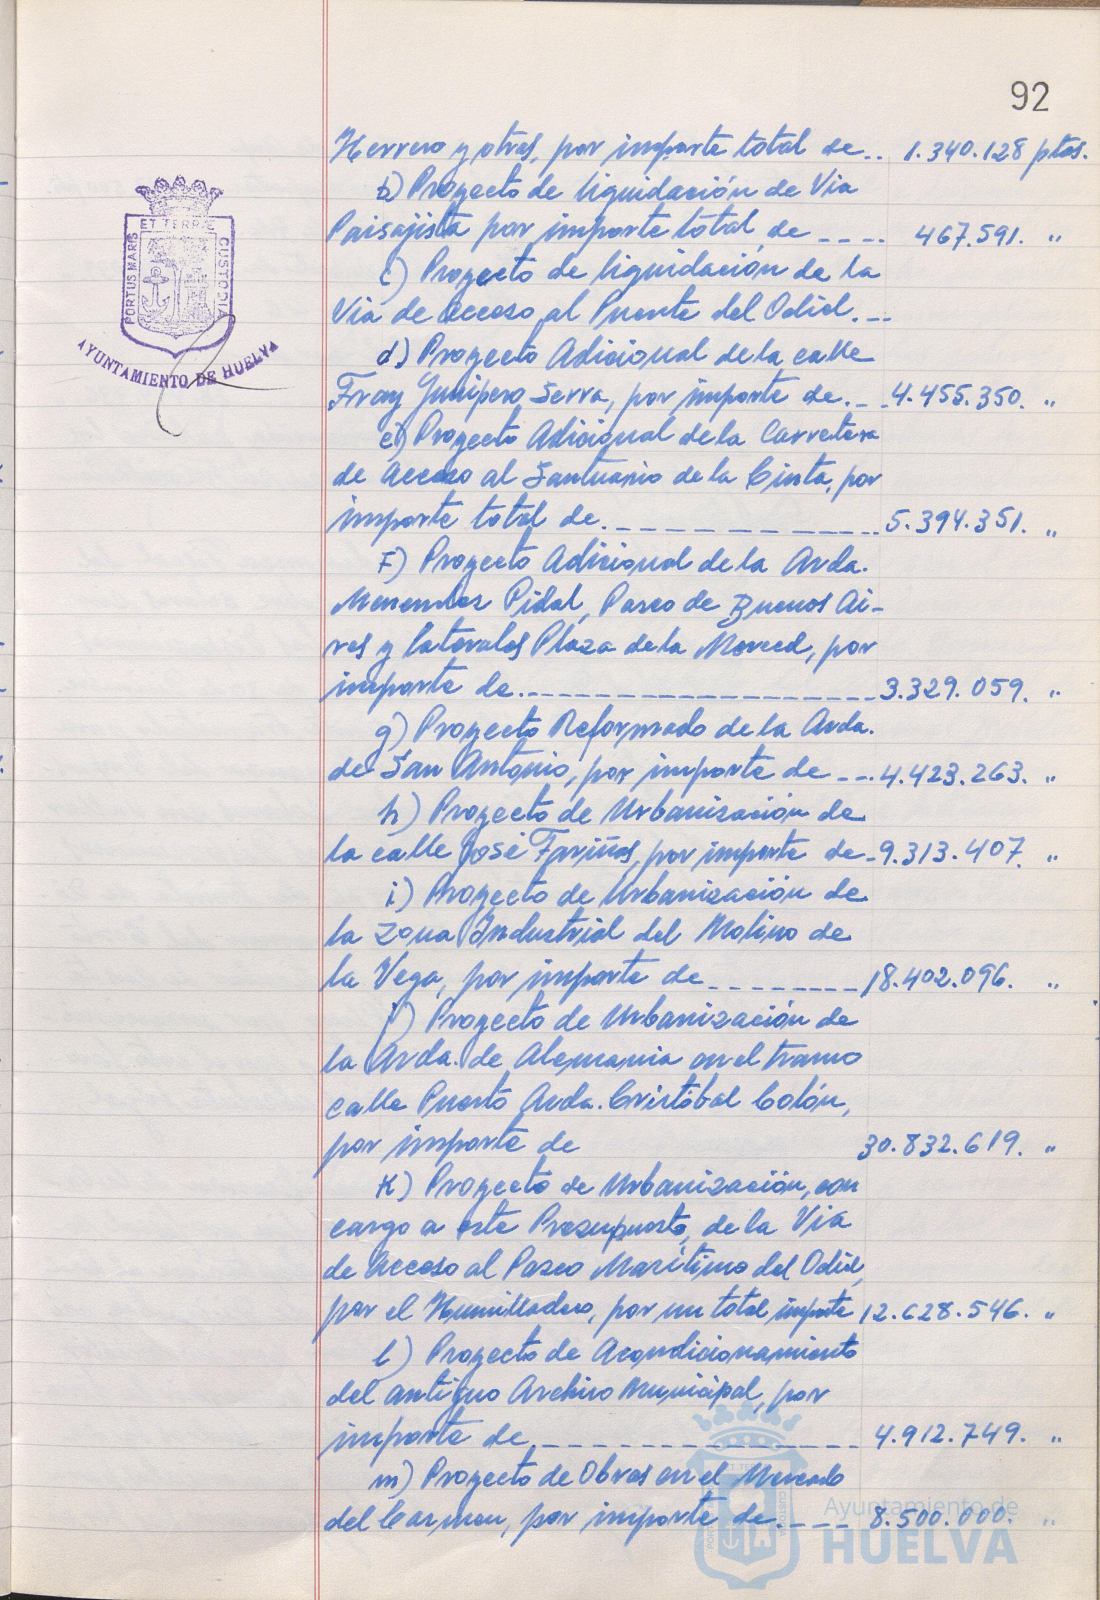 92
Herrero y otras, por importe total de.. 1.340.128 ptas.
b) Proyecto de liquidación de Via
Paisajista por importe total de ---- 467.591. "
c) Proyecto de liquidación de la
Via de acceso al Puente del Odiel.--
d) Proyecto Adicional de la calle
Fray Junípero Serra, por importe de.-- 4.455.350. "
e) Proyecto Adicional de la Carretera
de acceso al Santuario de la Cinta, por
importe total de.-------------- 5.394.351. "
F) Proyecto Adicional de la Avda.
Menendez Pidal, Paseo de Buenos Ai-
res y laterales Plaza de la Merced, por
importe de.------------------ 3.329.059. "
g) Proyecto Reformado de la Avda.
de San Antonio, por importe de --- 4.423.263. "
h) Proyecto de Urbanización de
la calle José Fariñas, por importe de - 9.313.407. "
i) Proyecto de Urbanización de
la zona Industrial del Molino de
la Vega, por importe de -------- 18.402.096. "
j) Proyecto de Urbanización de
la Avda. de Alemania en el tramo
calle Puerto Avda. Cristóbal Colón,
por importe de 30.832.619. "
K) Proyecto de Urbanización, con
cargo a este Presupuesto, de la Via
de acceso al Paseo Marítimo del Odiel,
por el Humilladero, por un total importe 12.628.546. "
l) Proyecto de Acondicionamiento
del antiguo Archivo Municipal, por
importe de --------------- 4.912.749. "
m) Proyecto de Obras en el Mercado
del Carmen, por importe de.---- 8.500.000. "
PORTUS MARIS ET TERRE CUSTODIA
AYUNTAMIENTO DE HUELVA
Ayuntamiento de
HUELVA